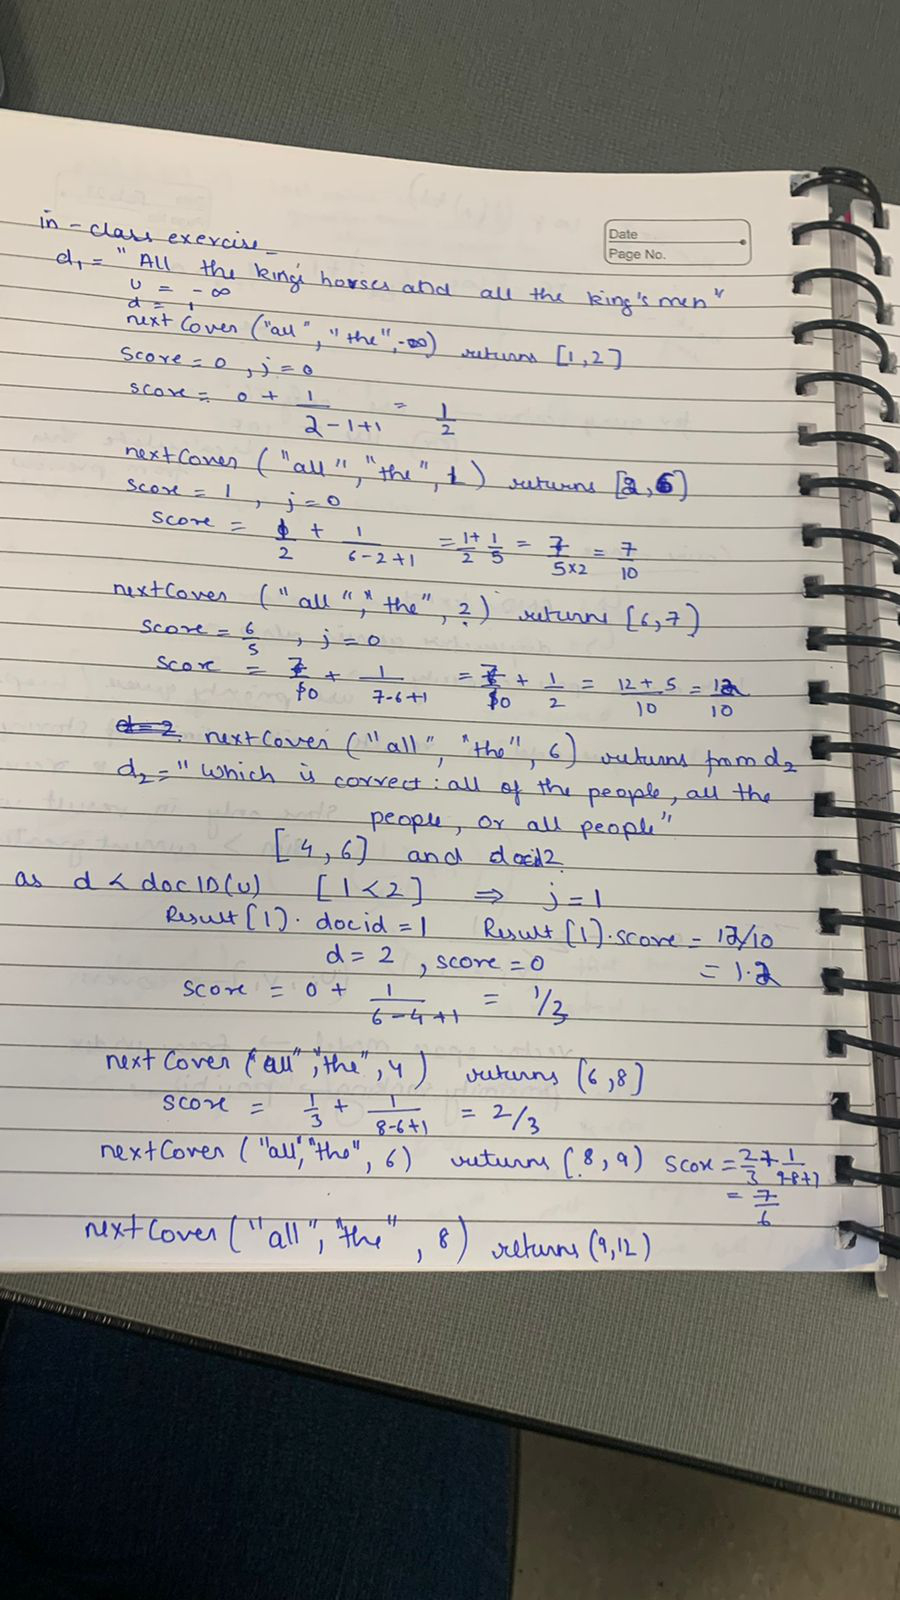 in-class exercise
Date
Page No.
d₁ = "All the king's horses and all the king's men"
u = -∞
d = 1
nextCover ("all", "the", -∞) returns [1,2]
score = 0, j = 0
score = 0 + 1/(2-1+1) = 1/2
nextCover ("all", "the", 1) returns [2,6]
score = 1, j = 0
score = 1/2 + 1/(6-2+1) = 1/2 + 1/5 = 7/(5x2) = 7/10
nextCover ("all", "the", 2) returns [6,7]
score = 6/5, j = 0
score = 7/10 + 1/(7-6+1) = 7/10 + 1/2 = (12+5)/10 = 12/10
d=2. nextCover ("all", "the", 6) returns from d₂
d₂ = "Which is correct: all of the people, all the
people, or all people"
[4,6] and docid2
as d < docID(u) [1<2] ⇒ j = 1
Result[1].docid = 1 Result[1].score = 12/10
d = 2, score = 0 = 1.2
score = 0 + 1/(6-4+1) = 1/3
nextCover ("all", "the", 4) returns [6,8]
score = 1/3 + 1/(8-6+1) = 2/3
nextCover ("all", "the", 6) returns (8,9) score = 2/3 + 1/(9-8+1)
= 7/6
nextCover ("all", "the", 8) returns (9,12)